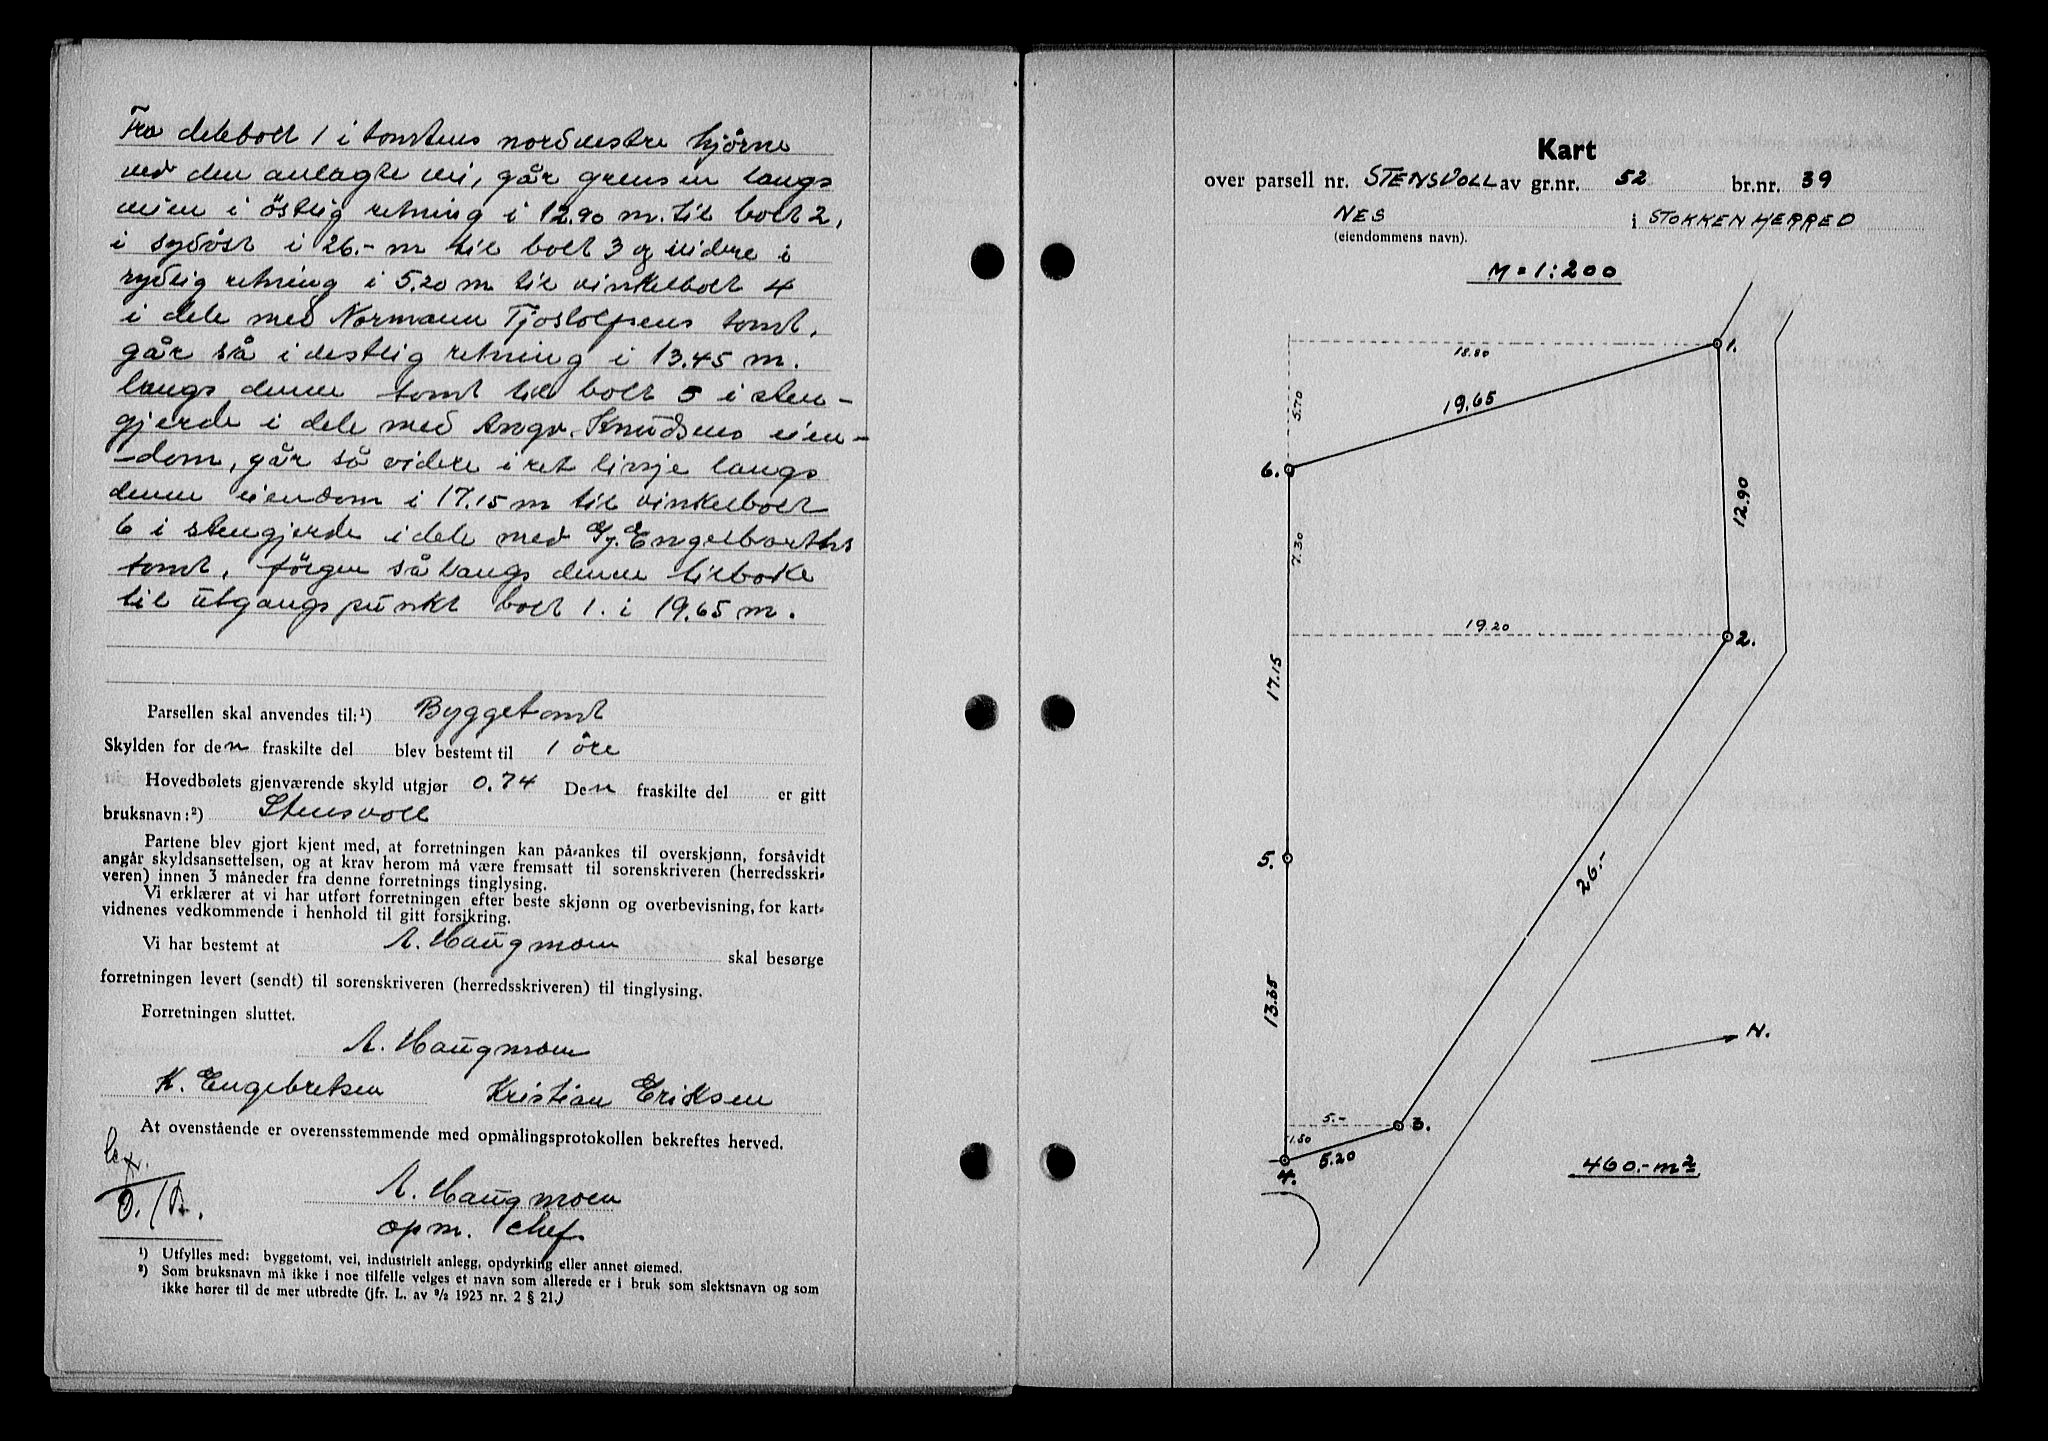 Fra delebolt 1 i tomtens nordvestre hjørne
ved den anlagte vei, går grensen langs
veien i östlig retning i 12.90 m. til bolt 2,
i sydöst i 26.- m til bolt 3 og videre i
sydlig retning i 5.20 m til vinkelbolt 4
i dele med Normann Tjostolfsens tomt,
går så i vestlig retning i 13.45 m.
langs denne tomt til bolt 5 i sten-
gjerde i dele med Angv. Knudsens eien-
-dom, går så videre i ret linje langs
denne eiendom i 17.15 m til vinkelbolt
6 i stengjerde i dele med Gy. Engelbarths
tomt, følger så langs denne tilbake
til utgangspunkt bolt 1. i 19.65 m.
Parsellen skal anvendes til:¹) Byggetomt
Skylden for den fraskilte del blev bestemt til 1 öre
Hovedbølets gjenværende skyld utgjør 0.74 Den fraskilte del er gitt
bruksnavn:²) Stensvoll
Partene blev gjort kjent med, at forretningen kan på-ankes til overskjønn, forsåvidt
angår skyldsansettelsen, og at krav herom må være fremsatt til sorenskriveren (herredsskri-
veren) innen 3 måneder fra denne forretnings tinglysing.
Vi erklærer at vi har utført forretningen efter beste skjønn og overbevisning, for kart-
vidnenes vedkommende i henhold til gitt forsikring.
Vi har bestemt at A. Haugmoen skal besørge
forretningen levert (sendt) til sorenskriveren (herredsskriveren) til tinglysing.
Forretningen sluttet.
A. Haugmoen
K. Engebretsen Kristian Eriksen
At ovenstående er overensstemmende med opmålingsprotokollen bekreftes herved.
A. Haugmoen
opm. chef.
¹) Utfylles med: byggetomt, vei, industrielt anlegg, opdyrking eller annet øiemed.
²) Som bruksnavn må ikke i noe tilfelle velges et navn som allerede er i bruk som slektsnavn og som
ikke hører til de mer utbredte (jfr. L. av ⁹/₂ 1923 nr. 2 § 21.)
Kart
over parsell nr. STENSVOLL av gr.nr. 52 br.nr. 39
NES i STOKKEN HERRED
(eiendommens navn).
M = 1:200
18.80
1.
5.70
19.65
6.
12.90
7.30
19.20
2.
17.15
5.
26.-
13.35
N.
5.-
3.
1.50
5.20
4.
460.- m²